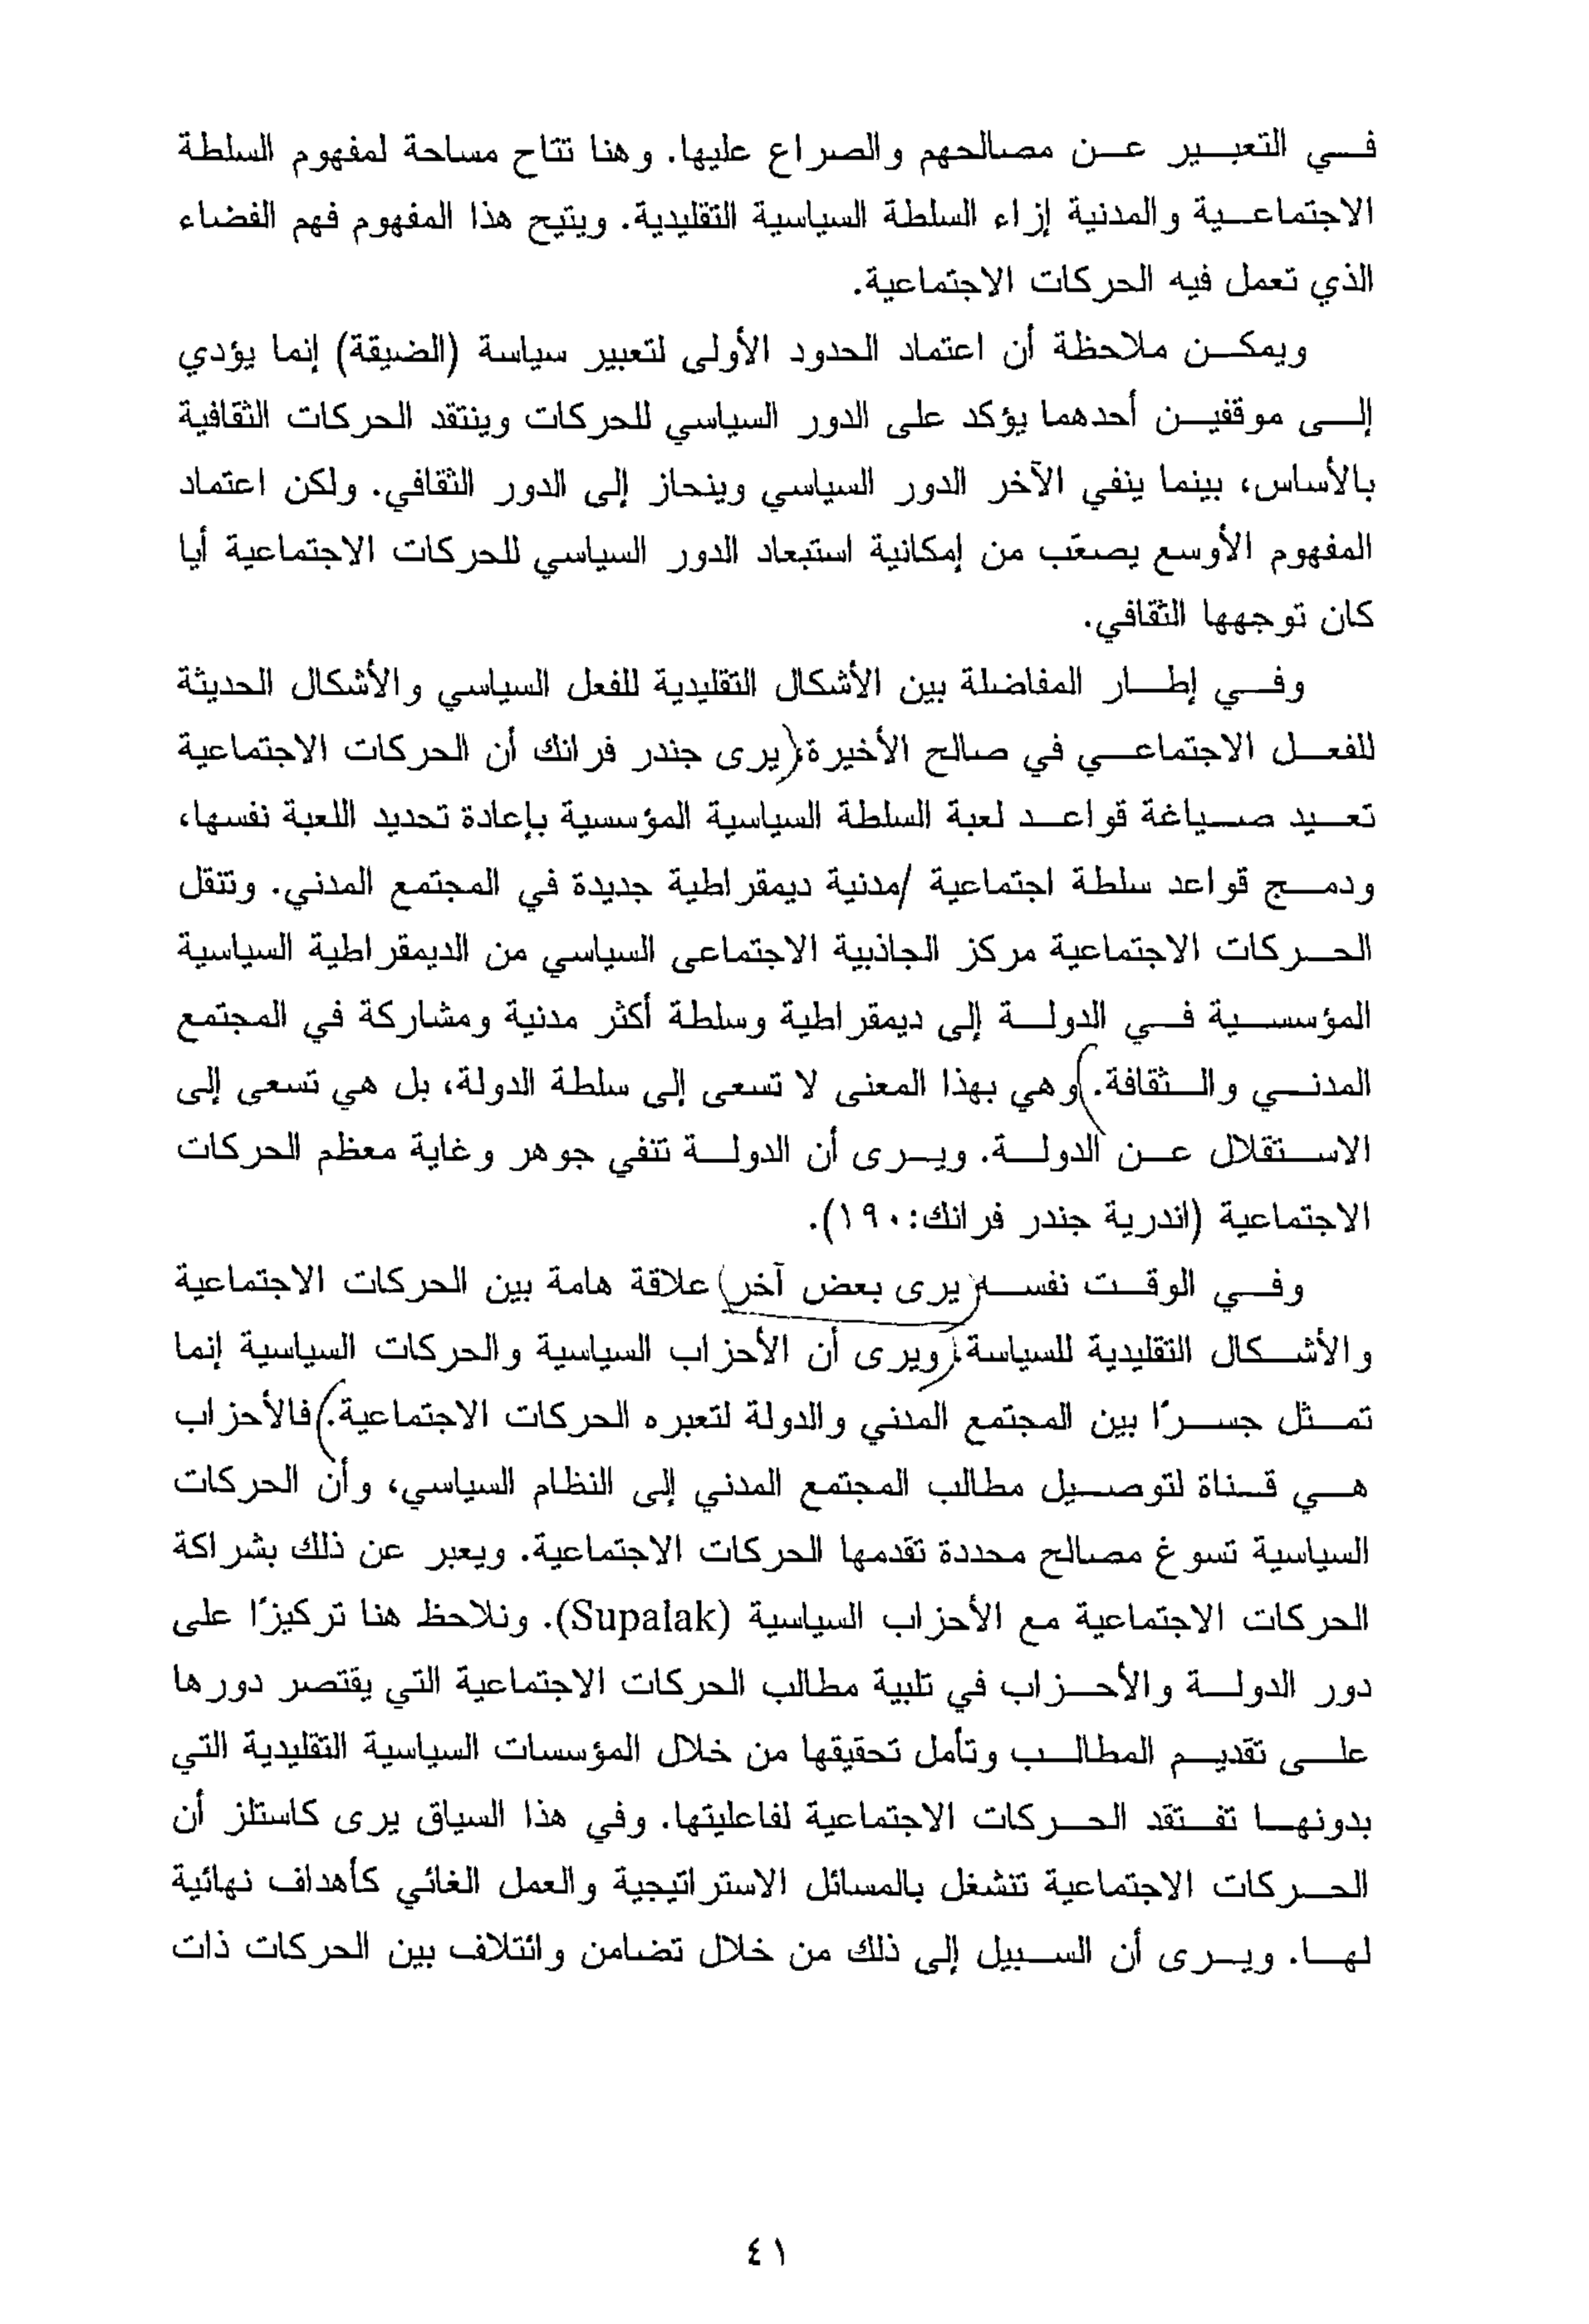 في التعبير عن مصالحهم والصراع عليها. وهنا تتاح مساحة لمفهوم السلطة
الاجتماعية والمدنية إزاء السلطة السياسية التقليدية. ويتيح هذا المفهوم فهم الفضاء
الذي تعمل فيه الحركات الاجتماعية.
ويمكن ملاحظة أن اعتماد الحدود الأولى لتعبير سياسة (الضيقة) إنما يؤدي
إلى موقفين أحدهما يؤكد على الدور السياسي للحركات وينتقد الحركات الثقافية
بالأساس، بينما ينفي الآخر الدور السياسي وينحاز إلى الدور الثقافي. ولكن اعتماد
المفهوم الأوسع يصعّب من إمكانية استبعاد الدور السياسي للحركات الاجتماعية أيا
كان توجهها الثقافي.
وفي إطار المفاضلة بين الأشكال التقليدية للفعل السياسي والأشكال الحديثة
للفعل الاجتماعي في صالح الأخيرة، يرى جندر فرانك أن الحركات الاجتماعية
تعيد صياغة قواعد لعبة السلطة السياسية المؤسسية بإعادة تحديد اللعبة نفسها،
ودمج قواعد سلطة اجتماعية /مدنية ديمقراطية جديدة في المجتمع المدني. وتنقل
الحركات الاجتماعية مركز الجاذبية الاجتماعى السياسي من الديمقراطية السياسية
المؤسسية في الدولة إلى ديمقراطية وسلطة أكثر مدنية ومشاركة في المجتمع
المدني والثقافة. وهي بهذا المعنى لا تسعى إلى سلطة الدولة، بل هي تسعى إلى
الاستقلال عن الدولة. ويرى أن الدولة تنفي جوهر وغاية معظم الحركات
الاجتماعية (اندرية جندر فرانك:١٩٠).
وفي الوقت نفسه يرى بعض آخر علاقة هامة بين الحركات الاجتماعية
والأشكال التقليدية للسياسة. ويرى أن الأحزاب السياسية والحركات السياسية إنما
تمثل جسرًا بين المجتمع المدني والدولة لتعبره الحركات الاجتماعية. فالأحزاب
هي قناة لتوصيل مطالب المجتمع المدني إلى النظام السياسي، وأن الحركات
السياسية تسوغ مصالح محددة تقدمها الحركات الاجتماعية. ويعبر عن ذلك بشراكة
الحركات الاجتماعية مع الأحزاب السياسية (Supalak). ونلاحظ هنا تركيزًا على
دور الدولة والأحزاب في تلبية مطالب الحركات الاجتماعية التي يقتصر دورها
على تقديم المطالب وتأمل تحقيقها من خلال المؤسسات السياسية التقليدية التي
بدونها تفتقد الحركات الاجتماعية لفاعليتها. وفي هذا السياق يرى كاستلز أن
الحركات الاجتماعية تنشغل بالمسائل الاستراتيجية والعمل الغائي كأهداف نهائية
لها. ويرى أن السبيل إلى ذلك من خلال تضامن وائتلاف بين الحركات ذات
٤١